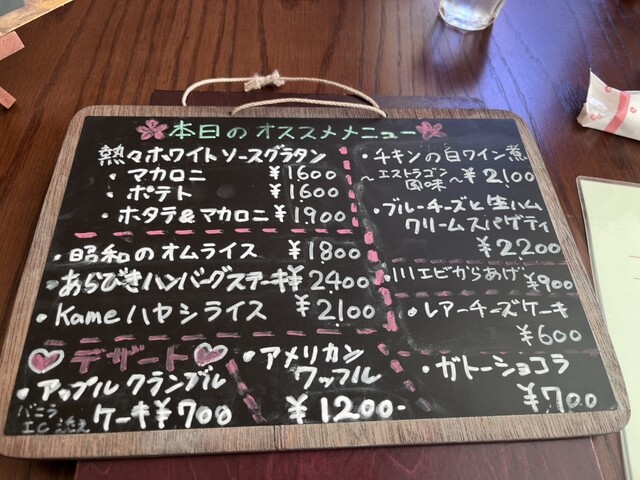 本日のオススメメニュー
熱々ホワイトソースグラタン
・マカロニ ¥1600
・ポテト ¥1600
・ホタテ&マカロニ ¥1900
・昭和のオムライス ¥1800
・あらびきハンバーグステーキ ¥2400
・Kameハヤシライス ¥2100
・チキンの白ワイン煮
~エストラゴン風味~ ¥2100
・ブルーチーズと生ハム
クリームスパゲティ
¥2200
・川エビからあげ ¥900
・レアーチーズケーキ
¥600
デザート
・アップルクランブル
ケーキ ¥700
バニラ
・アメリカン
ワッフル
¥1200-
・ガトーショコラ
¥700